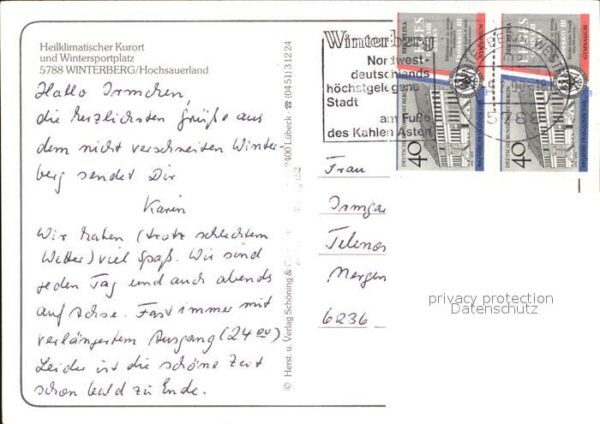 Heilklimatischer Kurort
und Wintersportplatz
5788 WINTERBERG/Hochsauerland
Hallo Irmchen,
die herzlichsten Grüße aus
dem nicht verschneiten Winter-
berg sendet Dir
Karin
Wir haben (trotz schlechtem
Wetter) viel Spaß. Wir sind
jeden Tag und auch abends
auf Achse. Fast immer mit
verlängertem Ausgang (24 00).
Leider ist die schöne Zeit
schon bald zu Ende.
© Herst. u. Verlag Schöning &
2400 Lübeck · ☎ (04 51) 3 12 24
Winterberg
Nordwest-
deutschlands
höchstgelegene
Stadt
am Fuße
des Kahlen Asten
40
40
GYMNASIUM
GYMNASIUM
Frau
Irmga
6236
privacy protection
Datenschutz